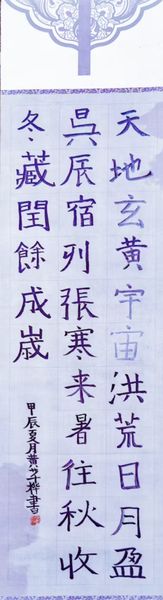 天地玄黄宇宙洪荒日月盈
吳辰宿列張寒来暑往秋收
冬藏閏餘成歲
甲辰夏月黄芊樺書